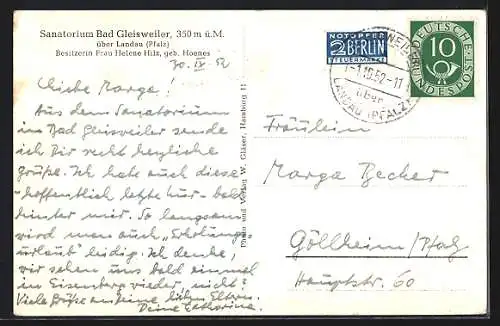 Sanatorium Bad Gleisweiler, 350 m ü.M.
über Landau (Pfalz)
Besitzerin Frau Helene Hilz, geb. Hoenes
30. IX. 52
Liebe Marga!
Aus dem Sanatorium
in Bad Gleisweiler sende
ich Dir recht herzliche
Grüße. Ich habe auch diese
- hoffentlich letzte Kur - bald
hinter mir. So langsam
wird man auch „Erholungs-
urlaub" leidig. Ich denke,
wir sehen uns bald einmal
in Eisenberg wieder, nicht?
Viele Grüße an Deine lieben Eltern.
Deine Catharina.
Photo und Verlag W. Gläser, Hamburg 11
NOTOPFER
2 BERLIN
STEUERMARKE
-1.10.52-11
über
LANDAU (PFALZ)
DEUTSCHE
BUNDESPOST
10
Fräulein
Marga Becker
Göllheim/Pfalz
Hauptstr. 60